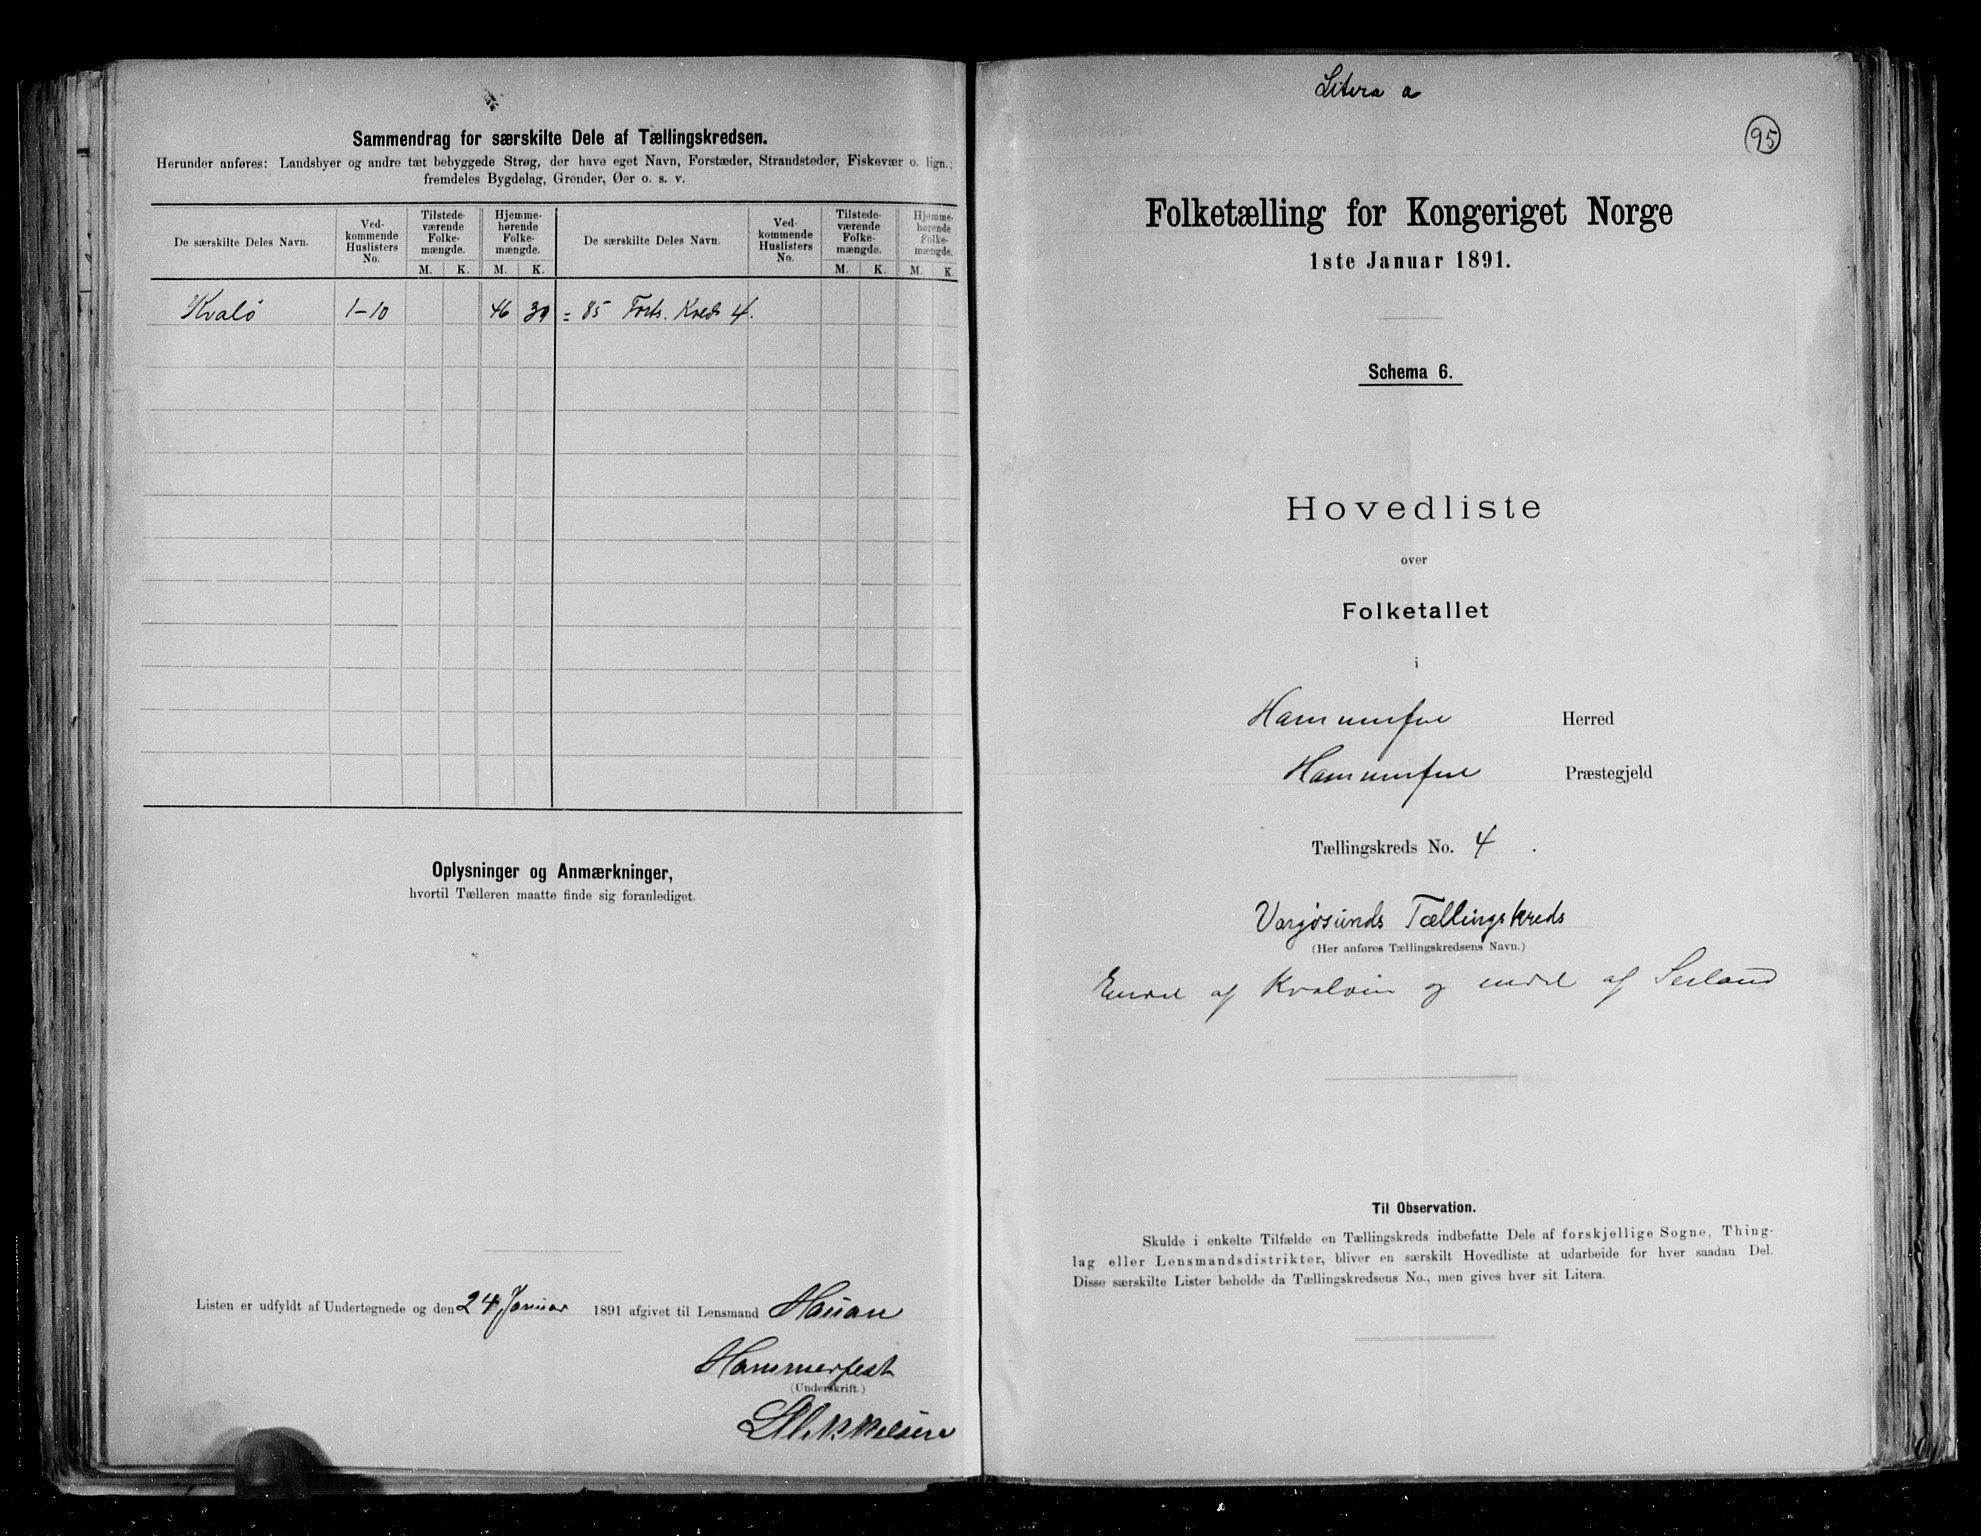 Sammendrag for særskilte Dele af Tællingskredsen.
Herunder anføres: Landsbyer og andre tæt bebyggede Strøg, der have eget Navn, Forstæder, Strandsteder, Fiskevær o. lign.;
fremdeles Bygdelag, Grender, Øer o. s. v.
De særskilte Deles Navn.
Ved-
kommende
Huslisters
No.
Tilstede-
værende
Folke-
mængde.
Hjemme-
hørende
Folke-
mængde.
De særskilte Deles Navn.
Ved-
kommende
Huslisters
No.
Tilstede-
værende
Folke-
mængde.
Hjemme-
hørende
Folke-
mængde.
M. K. M. K. M. K. M. K.
Kvalø 1-10 46 39 = 85 Forts. Kreds 4.
Oplysninger og Anmærkninger,
hvortil Tælleren maatte finde sig foranlediget.
Listen er udfyldt af Undertegnede og den 24 Januar 1891 afgivet til Lensmand Hauan
Hammerfest
(Underskrift.)
Mikkelsen
Litera a
95
Folketælling for Kongeriget Norge
1ste Januar 1891.
Schema 6.
Hovedliste
over
Folketallet
i
Hammerfest Herred
Hammerfest Præstegjeld
Tællingskreds No. 4.
Vargøsunds Tællingskreds
(Her anføres Tællingskredsens Navn.)
af og af Seiland
Til Observation.
Skulde i enkelte Tilfælde en Tællingskreds indbefatte Dele af forskjellige Sogne, Thing-
lag eller Lensmandsdistrikter, bliver en særskilt Hovedliste at udarbeide for hver saadan Del.
Disse særskilte Lister beholde da Tællingskredsens No., men gives hver sit Litera.